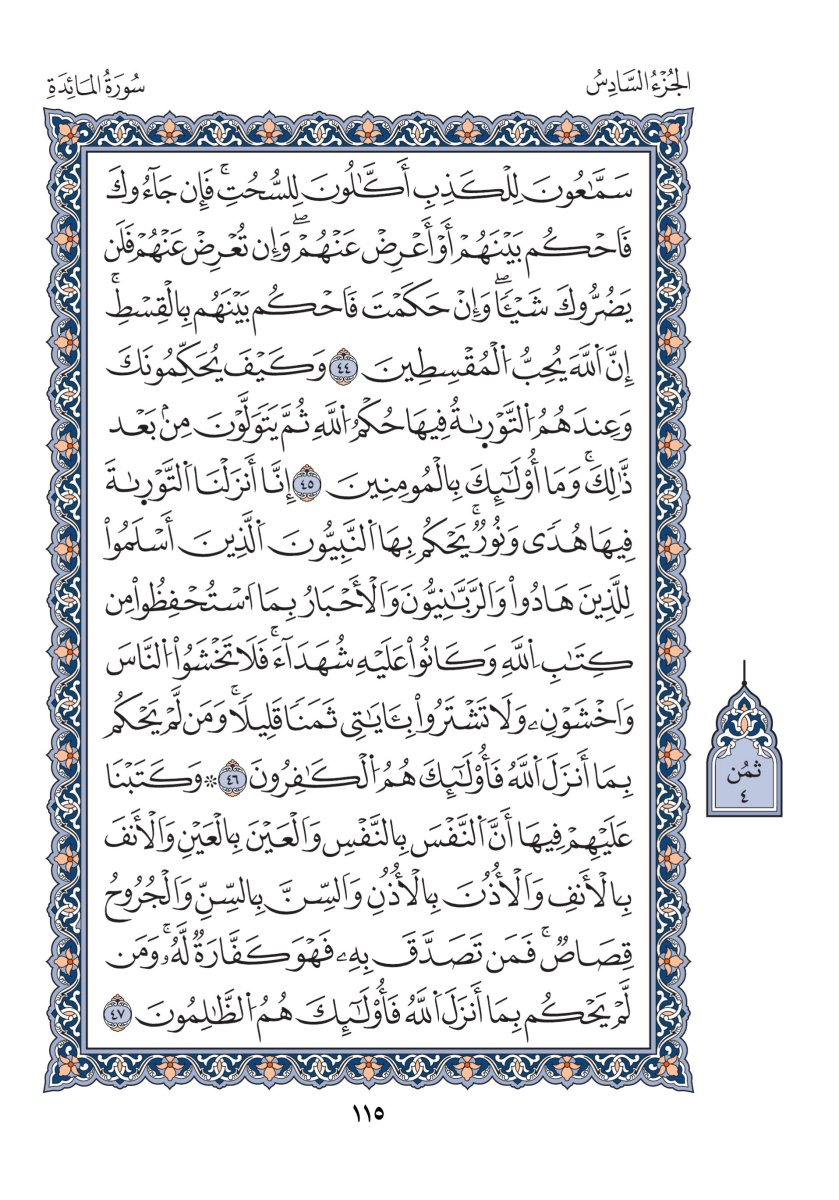 الجُزْءُ السَّادِسُ
سُورَةُ المَائِدَةِ
سَمَّٰعُونَ لِلۡكَذِبِ أَكَّٰلُونَ لِلسُّحُتِۚ فَإِن جَآءُوكَ
فَاَحۡكُم بَيۡنَهُمۡ أَوۡ أَعۡرِضۡ عَنۡهُمۡۖ وَإِن تُعۡرِضۡ عَنۡهُمۡ فَلَن
يَضُرُّوكَ شَيۡـٔٗاۖ وَإِنۡ حَكَمۡتَ فَاَحۡكُم بَيۡنَهُم بِالۡقِسۡطِۚ
إِنَّ اَللَّهَ يُحِبُّ اُلۡمُقۡسِطِينَ ٤٤ وَكَيۡفَ يُحَكِّمُونَكَ
وَعِندَهُمُ اُلتَّوۡرٜىٰةُ فِيهَا حُكۡمُ اُللَّهِ ثُمَّ يَتَوَلَّوۡنَ مِنۢ بَعۡدِ
ذَٰلِكَۚ وَمَا أُوْلَٰٓئِكَ بِالۡمُومِنِينَ ٤٥ إِنَّا أَنزَلۡنَا اَلتَّوۡرٜىٰةَ
فِيهَا هُدٗى وَنُورٞۚ يَحۡكُمُ بِهَا اَلنَّبِيُّونَ اَلَّذِينَ أَسۡلَمُواْ
لِلَّذِينَ هَادُواْ وَالرَّبَّٰنِيُّونَ وَالۡأَحۡبَارُ بِمَا اَسۡتُحۡفِظُواْ مِن
كِتَٰبِ اِللَّهِ وَكَانُواْ عَلَيۡهِ شُهَدَآءَۚ فَلَا تَخۡشَوُاْ اُلنَّاسَ
وَاَخۡشَوۡنِۦ وَلَا تَشۡتَرُواْ بِـَٔايَٰتِي ثَمَنٗا قَلِيلٗاۚ وَمَن لَّمۡ يَحۡكُم
بِمَا أَنزَلَ اَللَّهُ فَأُوْلَٰٓئِكَ هُمُ اُلۡكَٰفِرُونَ ٤٦ ۞وَكَتَبۡنَا
عَلَيۡهِمۡ فِيهَا أَنَّ اَلنَّفۡسَ بِالنَّفۡسِ وَالۡعَيۡنَ بِالۡعَيۡنِ وَالۡأَنفَ
بِالۡأَنفِ وَالۡأُذُنَ بِالۡأُذُنِ وَالسِّنَّ بِالسِّنِّ وَالۡجُرُوحُ
قِصَاصٞۚ فَمَن تَصَدَّقَ بِهِۦ فَهۡوَ كَفَّارَةٞ لَّهُۥۚ وَمَن
لَّمۡ يَحۡكُم بِمَا أَنزَلَ اَللَّهُ فَأُوْلَٰٓئِكَ هُمُ اُلظَّٰلِمُونَ ٤٧
ثُمُن
٤
١١٥